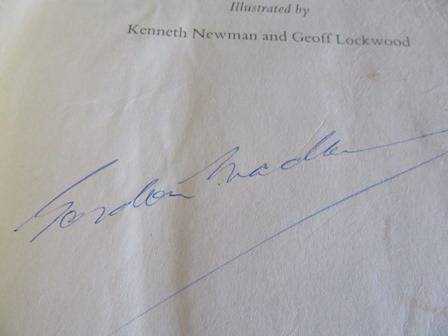 Illustrated by
Kenneth Newman and Geoff Lockwood
Gordon Maclean